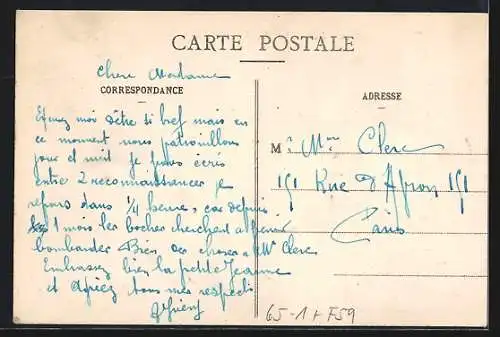 CARTE POSTALE
Chere Madame
CORRESPONDANCE
ADRESSE
Excusez moi d'être si bref mais en
ce moment nous patrouillons
jour et nuit je vous écris
entre 2 reconnaissances je
repars dans 1/4 heure, car depuis
1 mois les boches cherchent a
bombarder Bien des choses a Mr Clerc
Embrassez bien la petite Jeanne
et Agréez tous mes respects
M. Mme Clerc
151 Rue d'Avron 151
Paris
65-1+F59